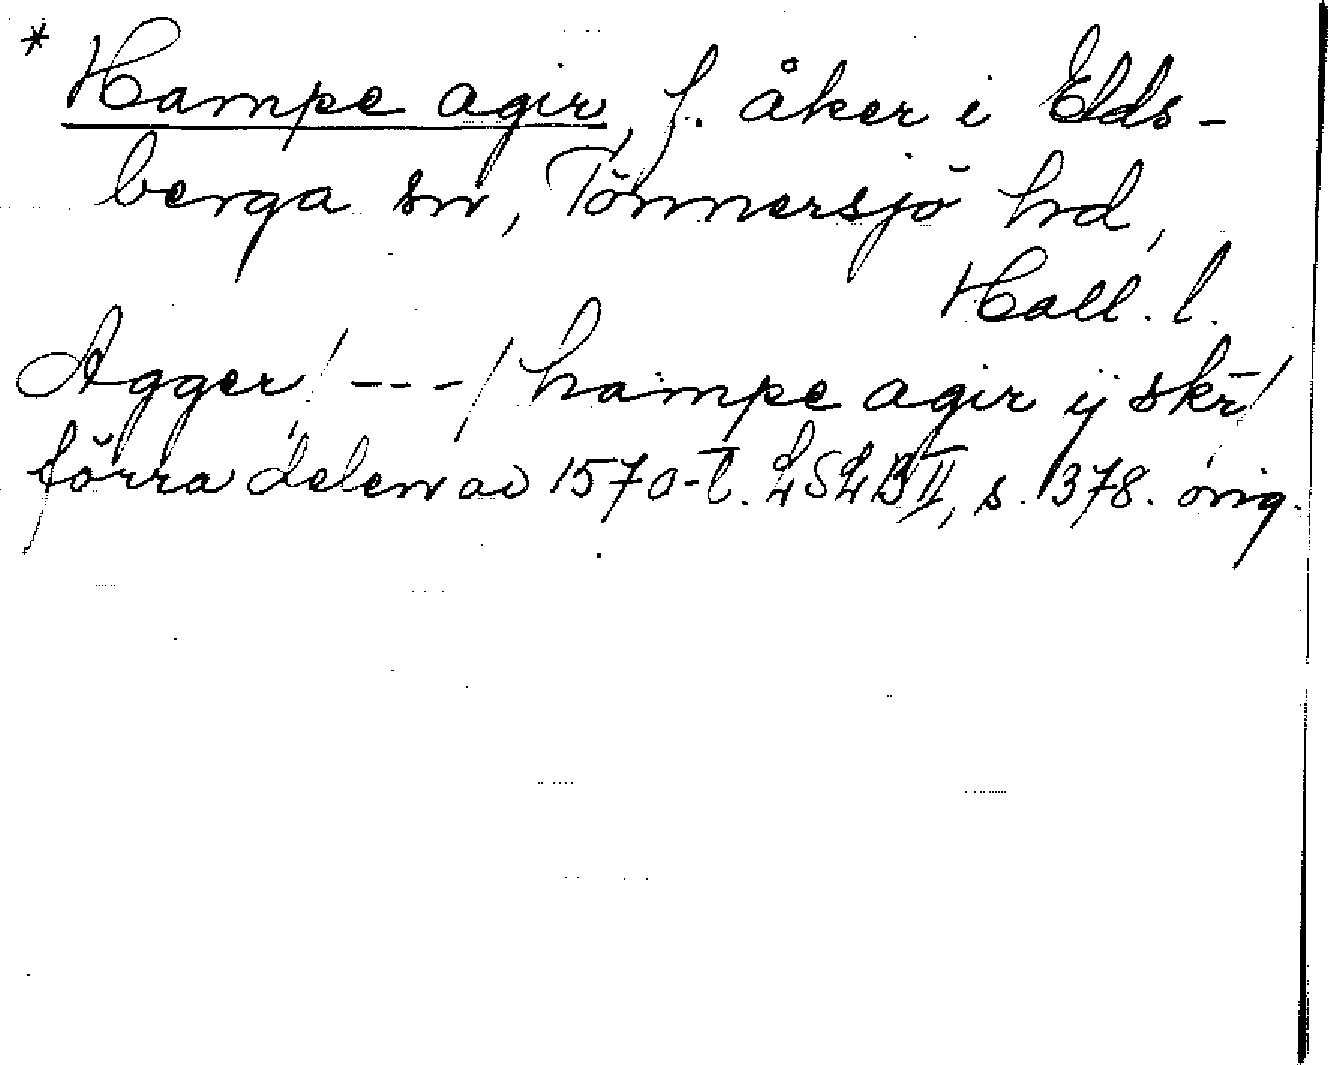 * Hampe agir, f. åker i Elds-
berga sn, Tönnersjö hd,
Hall. l.
Agger / --- / hampe agir ij skr̄ /
förra delen av 1570-t. LSLB II, s. 378. orig.